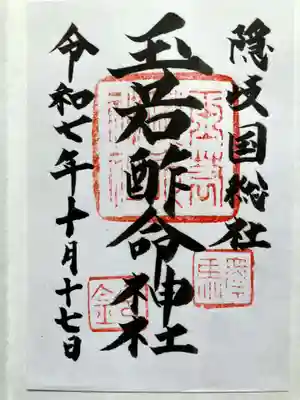 隠岐国総社
玉若酢命神社
令和七年十月十七日